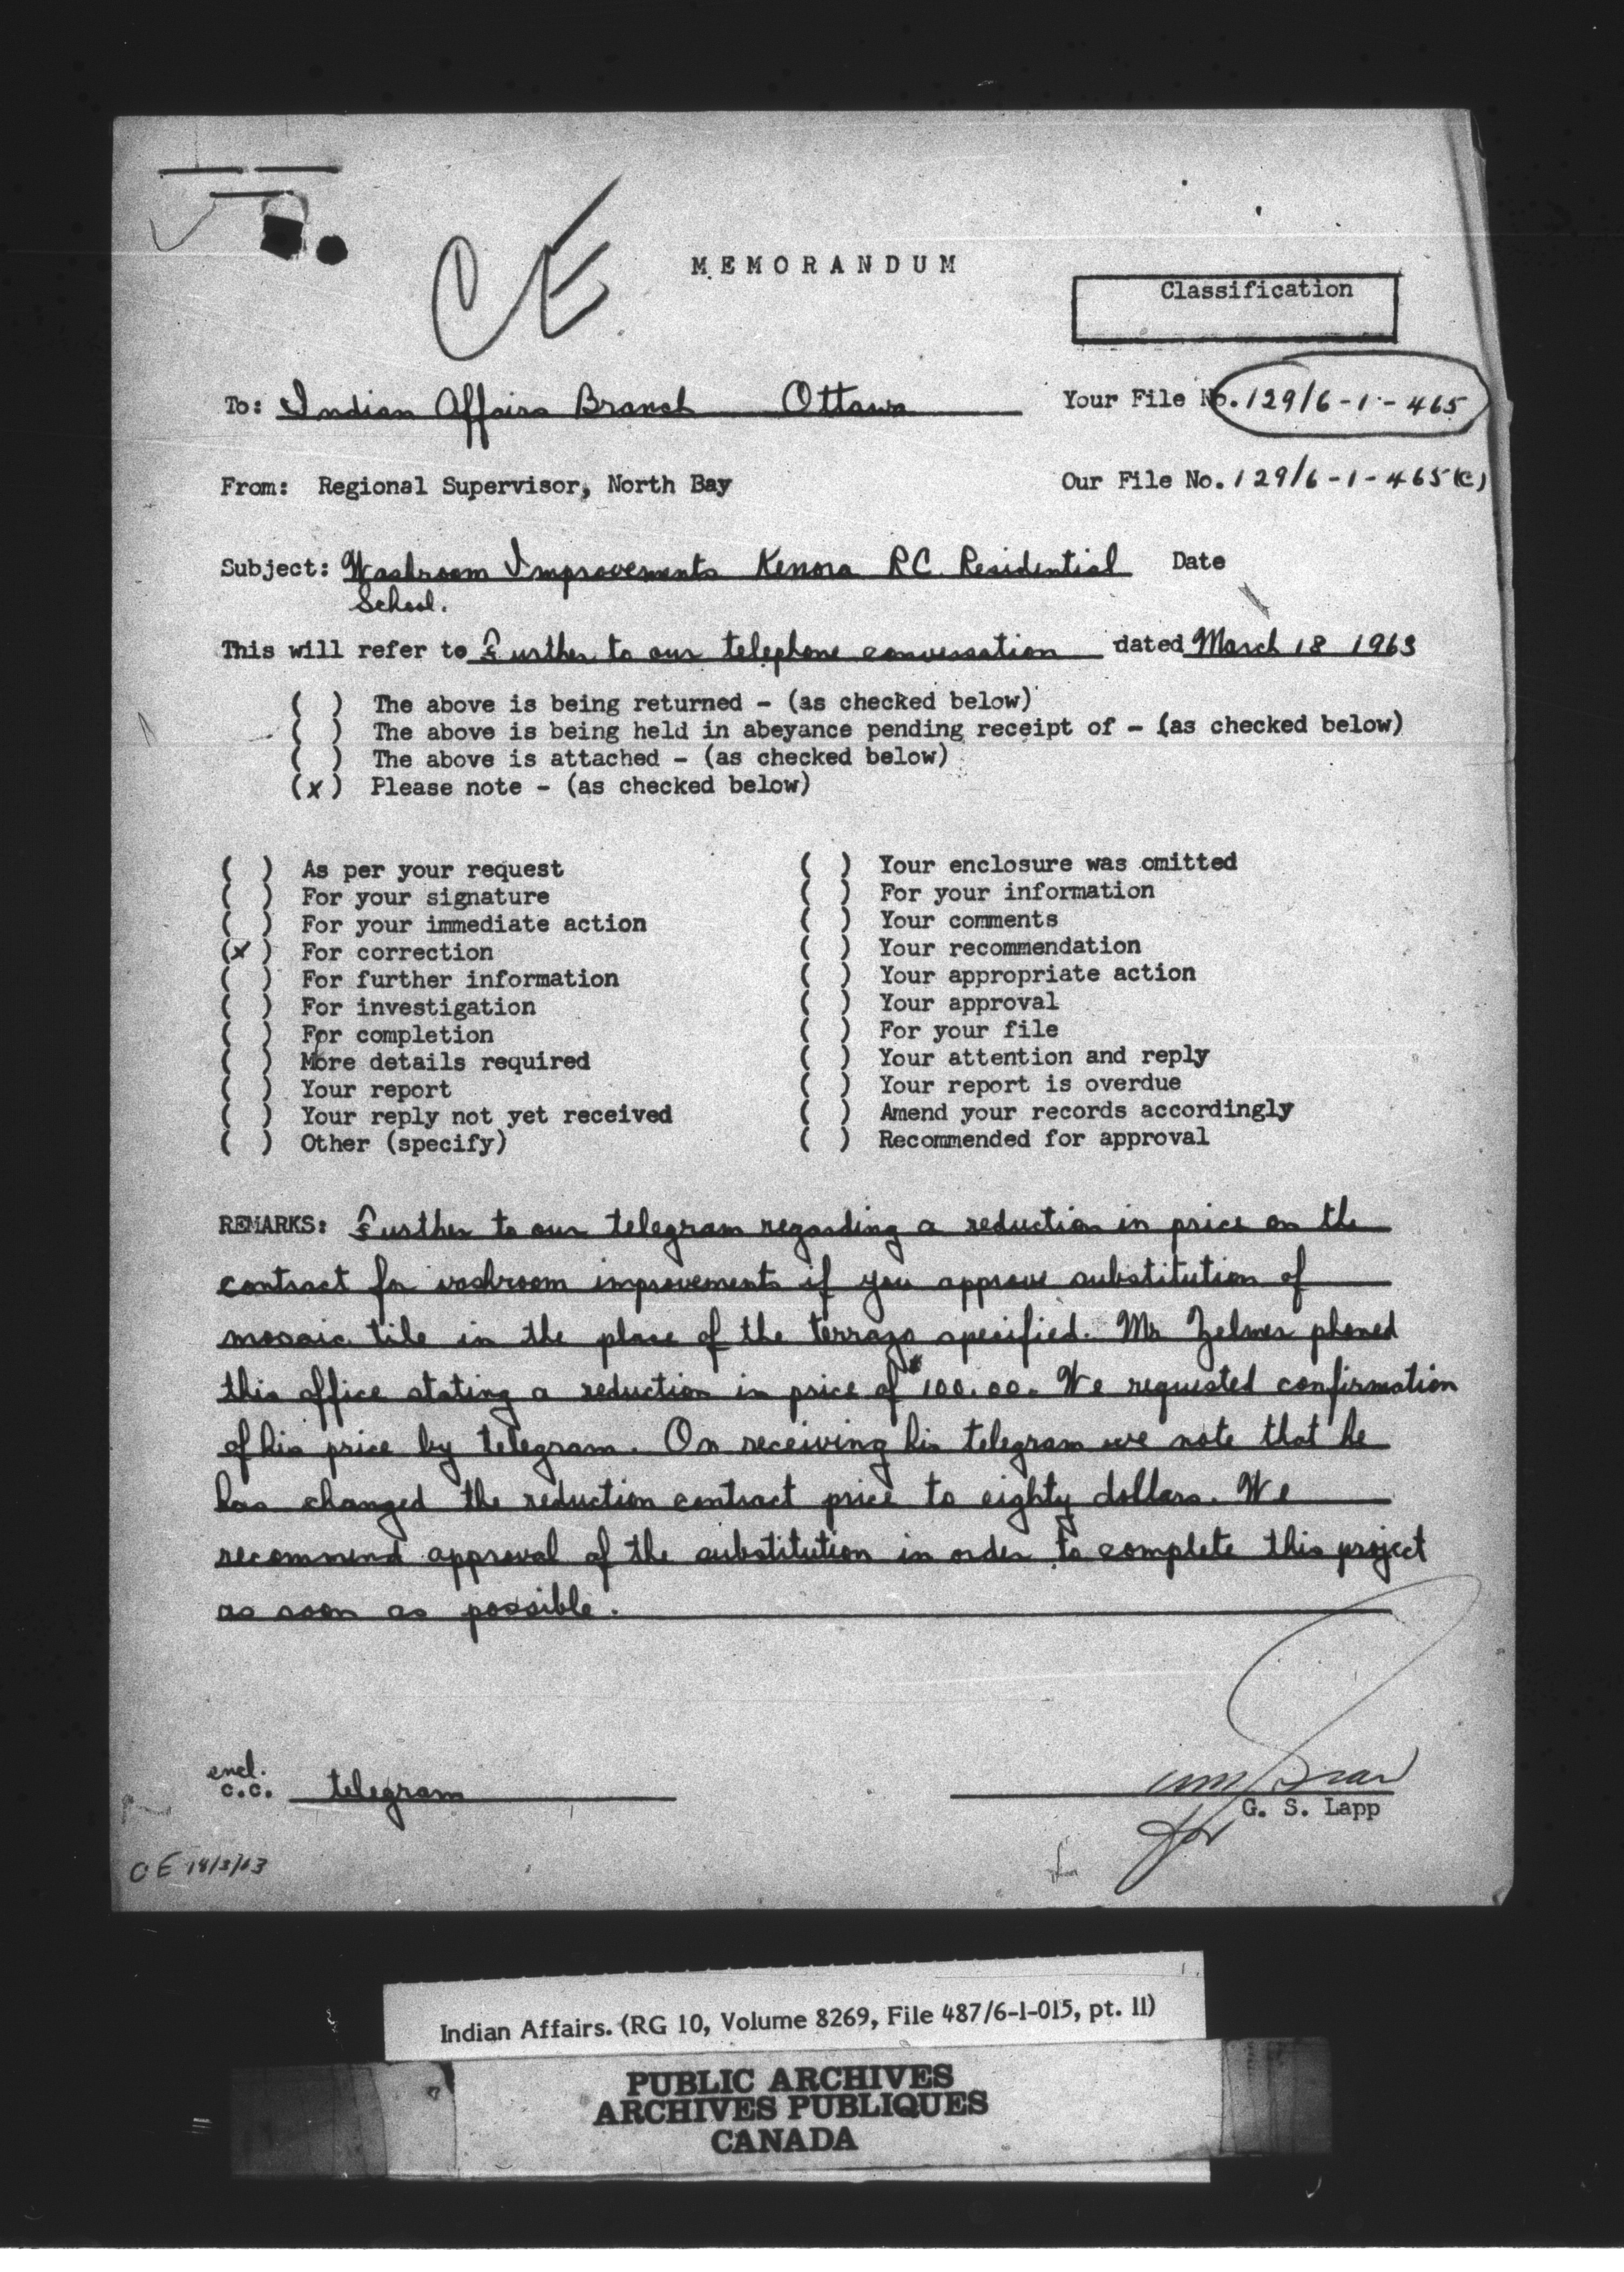 CE
MEMORANDUM
Classification
To: Indian Affairs Branch Ottawa
Your File No. 129/6-1-465
From: Regional Supervisor, North Bay
Our File No. 129/6-1-465(C)
Subject: Washroom Improvements Kenora R.C. Residential School. Date
This will refer to Further to our telephone conversation dated March 18 1963
( ) The above is being returned - (as checked below)
( ) The above is being held in abeyance pending receipt of - (as checked below)
( ) The above is attached - (as checked below)
(x) Please note - (as checked below)
( ) As per your request
( ) For your signature
( ) For your immediate action
(x) For correction
( ) For further information
( ) For investigation
( ) For completion
( ) More details required
( ) Your report
( ) Your reply not yet received
( ) Other (specify)
( ) Your enclosure was omitted
( ) For your information
( ) Your comments
( ) Your recommendation
( ) Your appropriate action
( ) Your approval
( ) For your file
( ) Your attention and reply
( ) Your report is overdue
( ) Amend your records accordingly
( ) Recommended for approval
REMARKS: Further to our telegram regarding a reduction in price on the
contract for washroom improvements if you approve substitution of
mosaic tile in the place of the terrazo specified. Mr Zelmer phoned
this office stating a reduction in price of $100.00. We requested confirmation
of his price by telegram. On receiving his telegram we note that he
has changed the reduction contract price to eighty dollars. We
recommend approval of the substitution in order to complete this project
as soon as possible.
encl.
c.c. telegram
G. S. Lapp
for
CE 18/3/63
Indian Affairs. (RG 10, Volume 8269, File 487/6-1-015, pt. 11)
PUBLIC ARCHIVES
ARCHIVES PUBLIQUES
CANADA